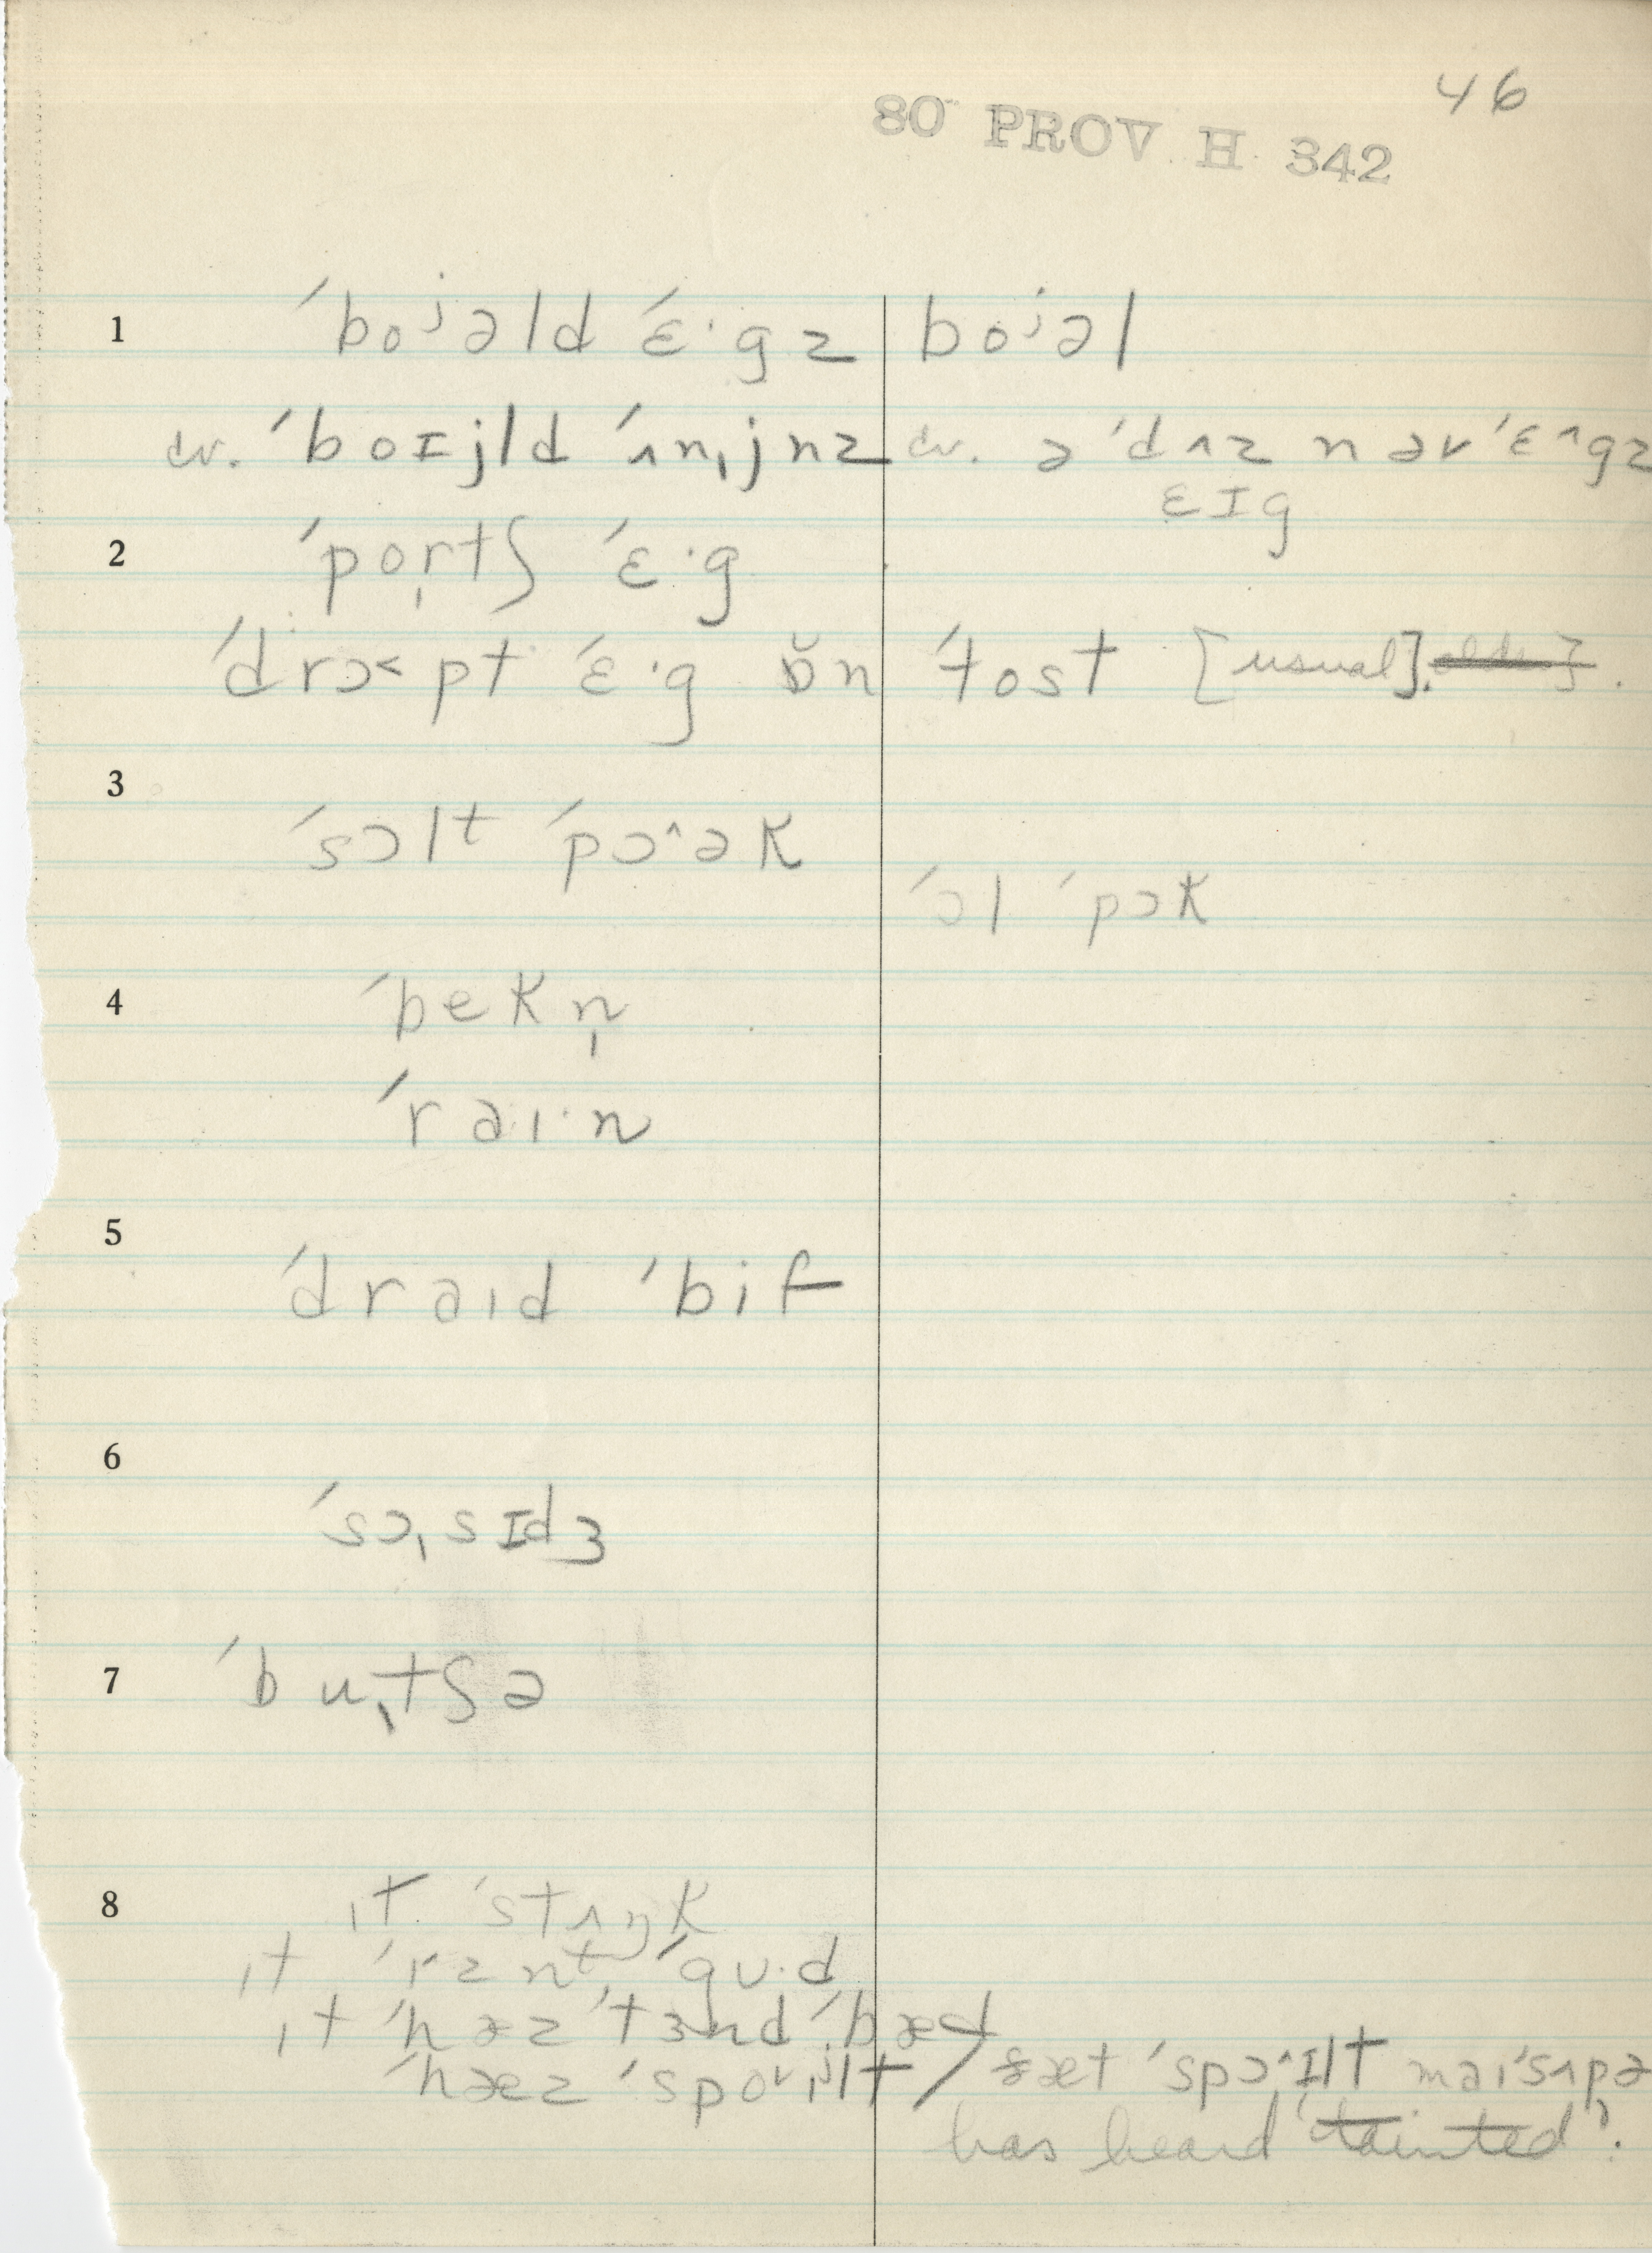 46
80 PROV H 342
1 ˈboʲəld ˈɛ·gz boʲəl
cv. ˈboɪjld ˈʌnˌjnz cv. əˈdʌz nəvˈɛ^gz
ɛɪg
2 ˈportʃ ˈɛ·g
ˈdrɔ<pt ˈɛ·g ɒ̆n ˈtost [usual].
3
ˈsɔlt ˈpɔ^ək
ˈɔl ˈpɔk
4 ˈbekn̩
ˈraɪ·n
5
ˈdraɪd ˈbif
6
ˈsɔˌsɪdʒ
7 ˈbuˌtʃə
8 ɪt ˈstʌŋk
ɪt ˈɪznt ˈgʊ·d
ɪt ˈhəz ˈtɜnd ˈbæd
ˈhæz ˈspoɪlt / ðæt ˈspɔ^ɪlt maɪˈsʌpə
has heard 'tainted'.